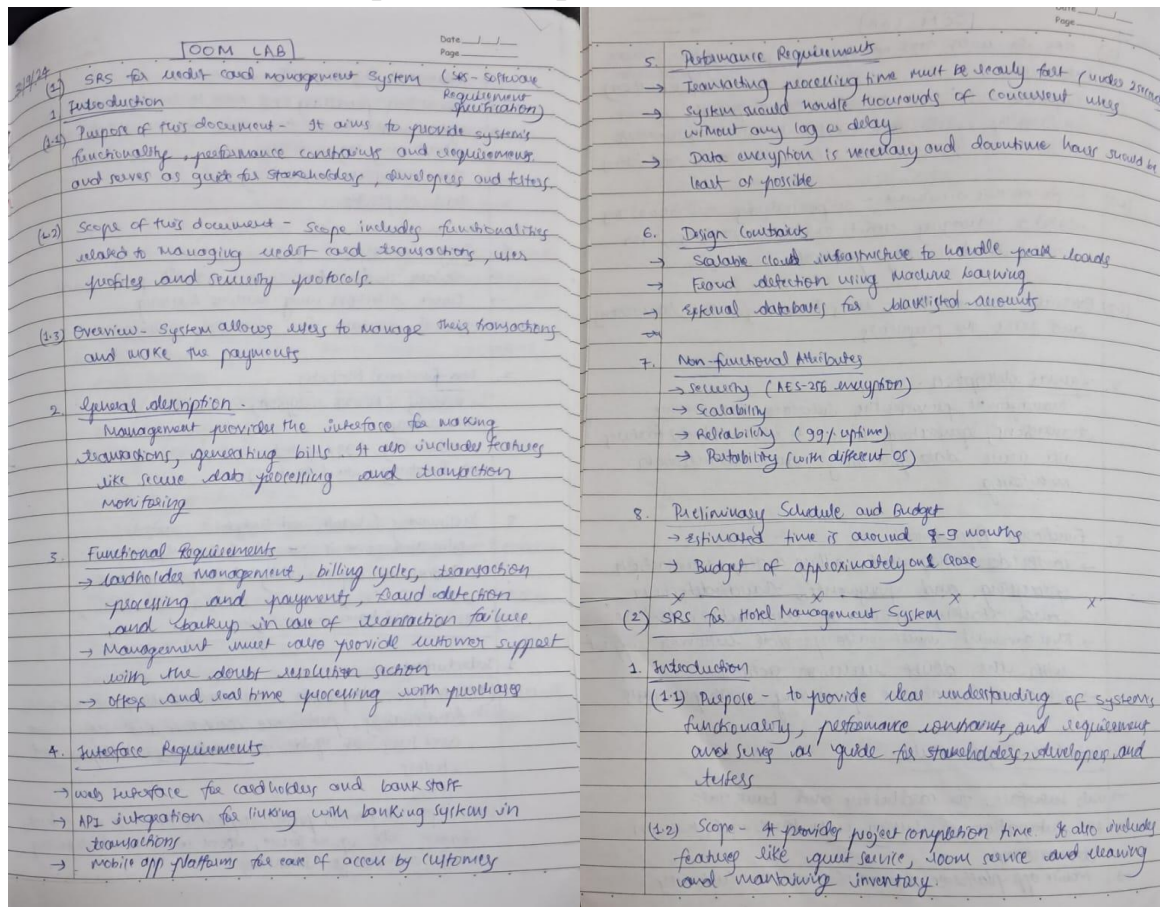 OOM LAB
Date
Page
3/9/24
(1) SRS for credit card management System (SRS - Software
Requirement
Specification)
1. Introduction
(1.1) Purpose of this document - It aims to provide system's
functionality, performance constraints and requirements
and serves as guide for stakeholders, developers and testers.
(1.2) Scope of this document - Scope includes functionalities
related to managing credit card transactions, user
profiles and security protocols.
(1.3) Overview - System allows users to manage their transactions
and make the payments
2. General description -
Management provides the interface for making
transactions, generating bills It also includes features
like secure data processing and transaction
monitoring
3. Functional Requirements -
→ Cardholder management, billing cycles, transaction
processing and payments, fraud detection
and backup in case of transaction failure
→ Management must also provide customer support
with the doubt resolution section
→ offers and real time processing with purchases
4. Interface Requirements
→ web interface for cardholders and bank staff
→ API integration for linking with banking systems in
transactions
→ Mobile app platforms for ease of access by customers
Date
Page
5. Performance Requirements
→ Transacting processing time must be really fast (under
→ System should handle thousands of concurrent users
without any lag or delay
→ Data encryption is necessary and downtime hours should be
least as possible
6. Design Constraints
→ Scalable cloud infrastructure to handle peak loads
→ Fraud detection using Machine Learning
→ External databases for blacklisted accounts
7. Non-functional Attributes
→ Security (AES-256 encryption)
→ Scalability
→ Reliability (99% uptime)
→ Portability (with different OS)
8. Preliminary Schedule and Budget
→ Estimated time is around 8-9 months
→ Budget of approximately one crore
x x x x
(2) SRS for Hotel Management System
1. Introduction
(1.1) Purpose - to provide clear understanding of systems
functionality, performance constraints, and requirement
and serves as guide for stakeholders, developers and
testers
(1.2) Scope - It provides project completion time. It also includes
features like guest service, room service and cleaning
and mantaining inventory.